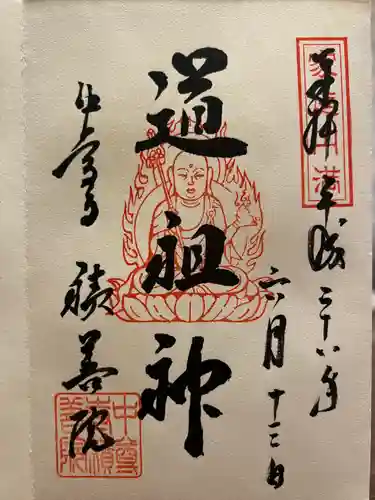 奉拝 平成三十年
六月十二日
道祖神
中尊寺 積善院
中尊寺積善院